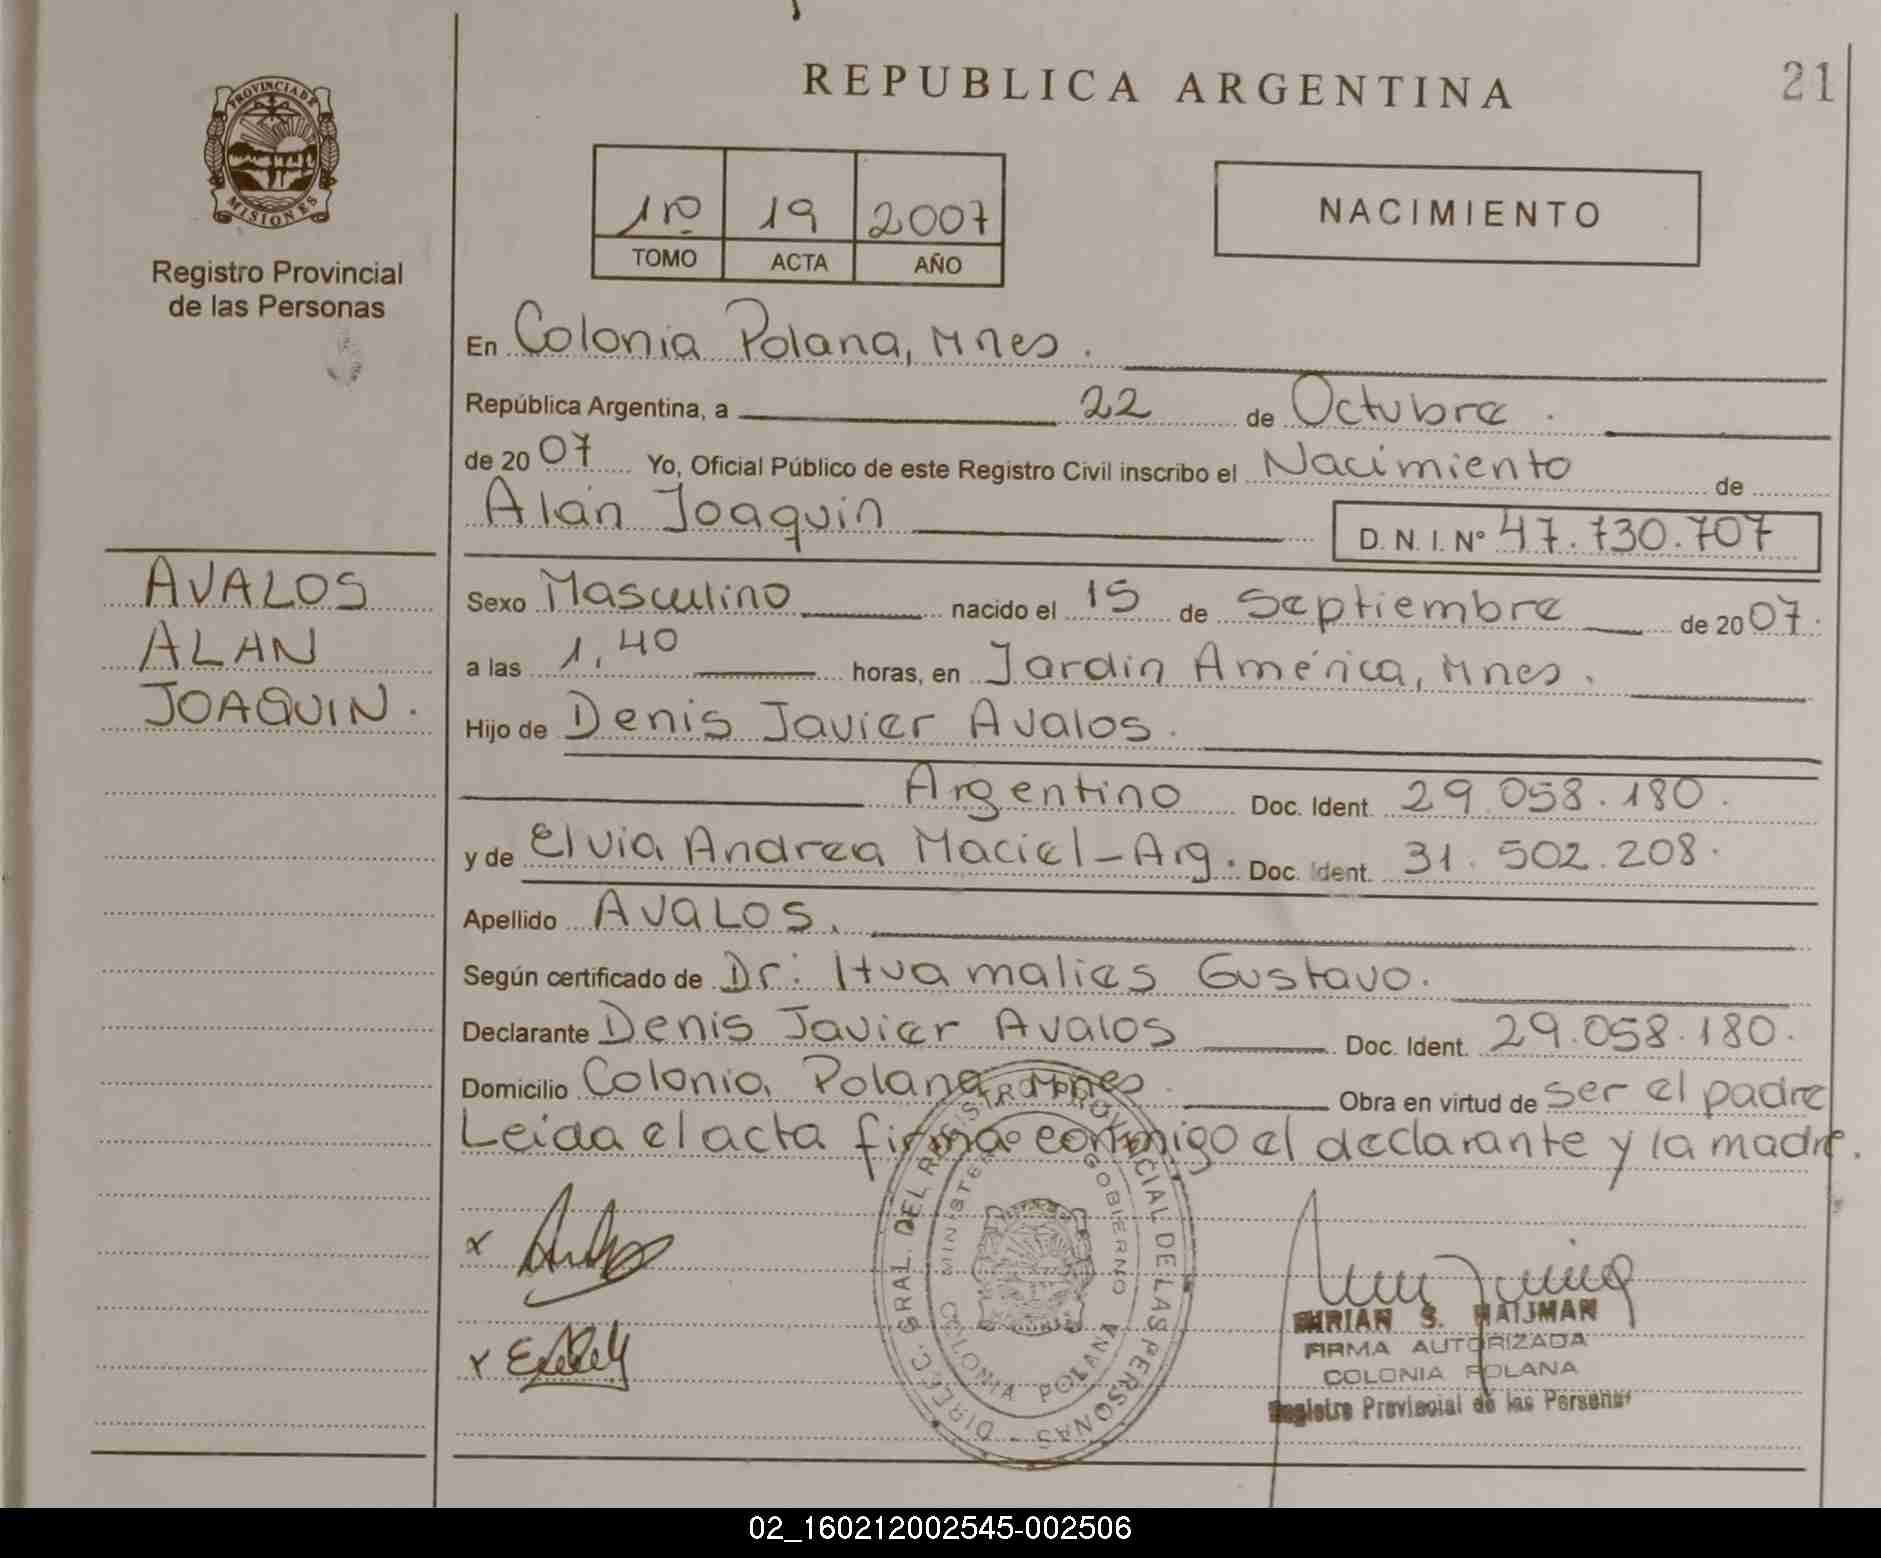 REPUBLICA ARGENTINA
21
PROVINCIA DE
MISIONES
Registro Provincial
de las Personas
1rº 19 2007
TOMO ACTA AÑO
NACIMIENTO
En Colonia Polana, Mnes.
República Argentina, a 22 de Octubre.
de 2007 Yo, Oficial Público de este Registro Civil inscribo el Nacimiento de
Alan Joaquin
D. N. I. Nº 47.730.707
AVALOS
ALAN
JOAQUIN.
Sexo Masculino nacido el 15 de Septiembre de 2007.
a las 1,40 horas, en Jardin América, Mnes.
Hijo de Denis Javier Avalos.
Argentino Doc. Ident. 29.058.180.
y de Elvia Andrea Maciel-Arg. Doc. Ident. 31.502.208.
Apellido AVALOS.
Según certificado de Dr: Gustavo.
Declarante Denis Javier Avalos Doc. Ident. 29.058.180.
Domicilio Colonia Polana, Mnes. Obra en virtud de ser el padre
Leida el acta firma conmigo el declarante y la madre.
x
x
DIREC. GRAL. DEL REGISTRO PROVINCIAL DE LAS PERSONAS -
MINISTERIO GOBIERNO
COLONIA POLANA
S. HAIJMAN
FIRMA AUTORIZADA
COLONIA POLANA
Registro Provincial de las Personas
02_160212002545-002506